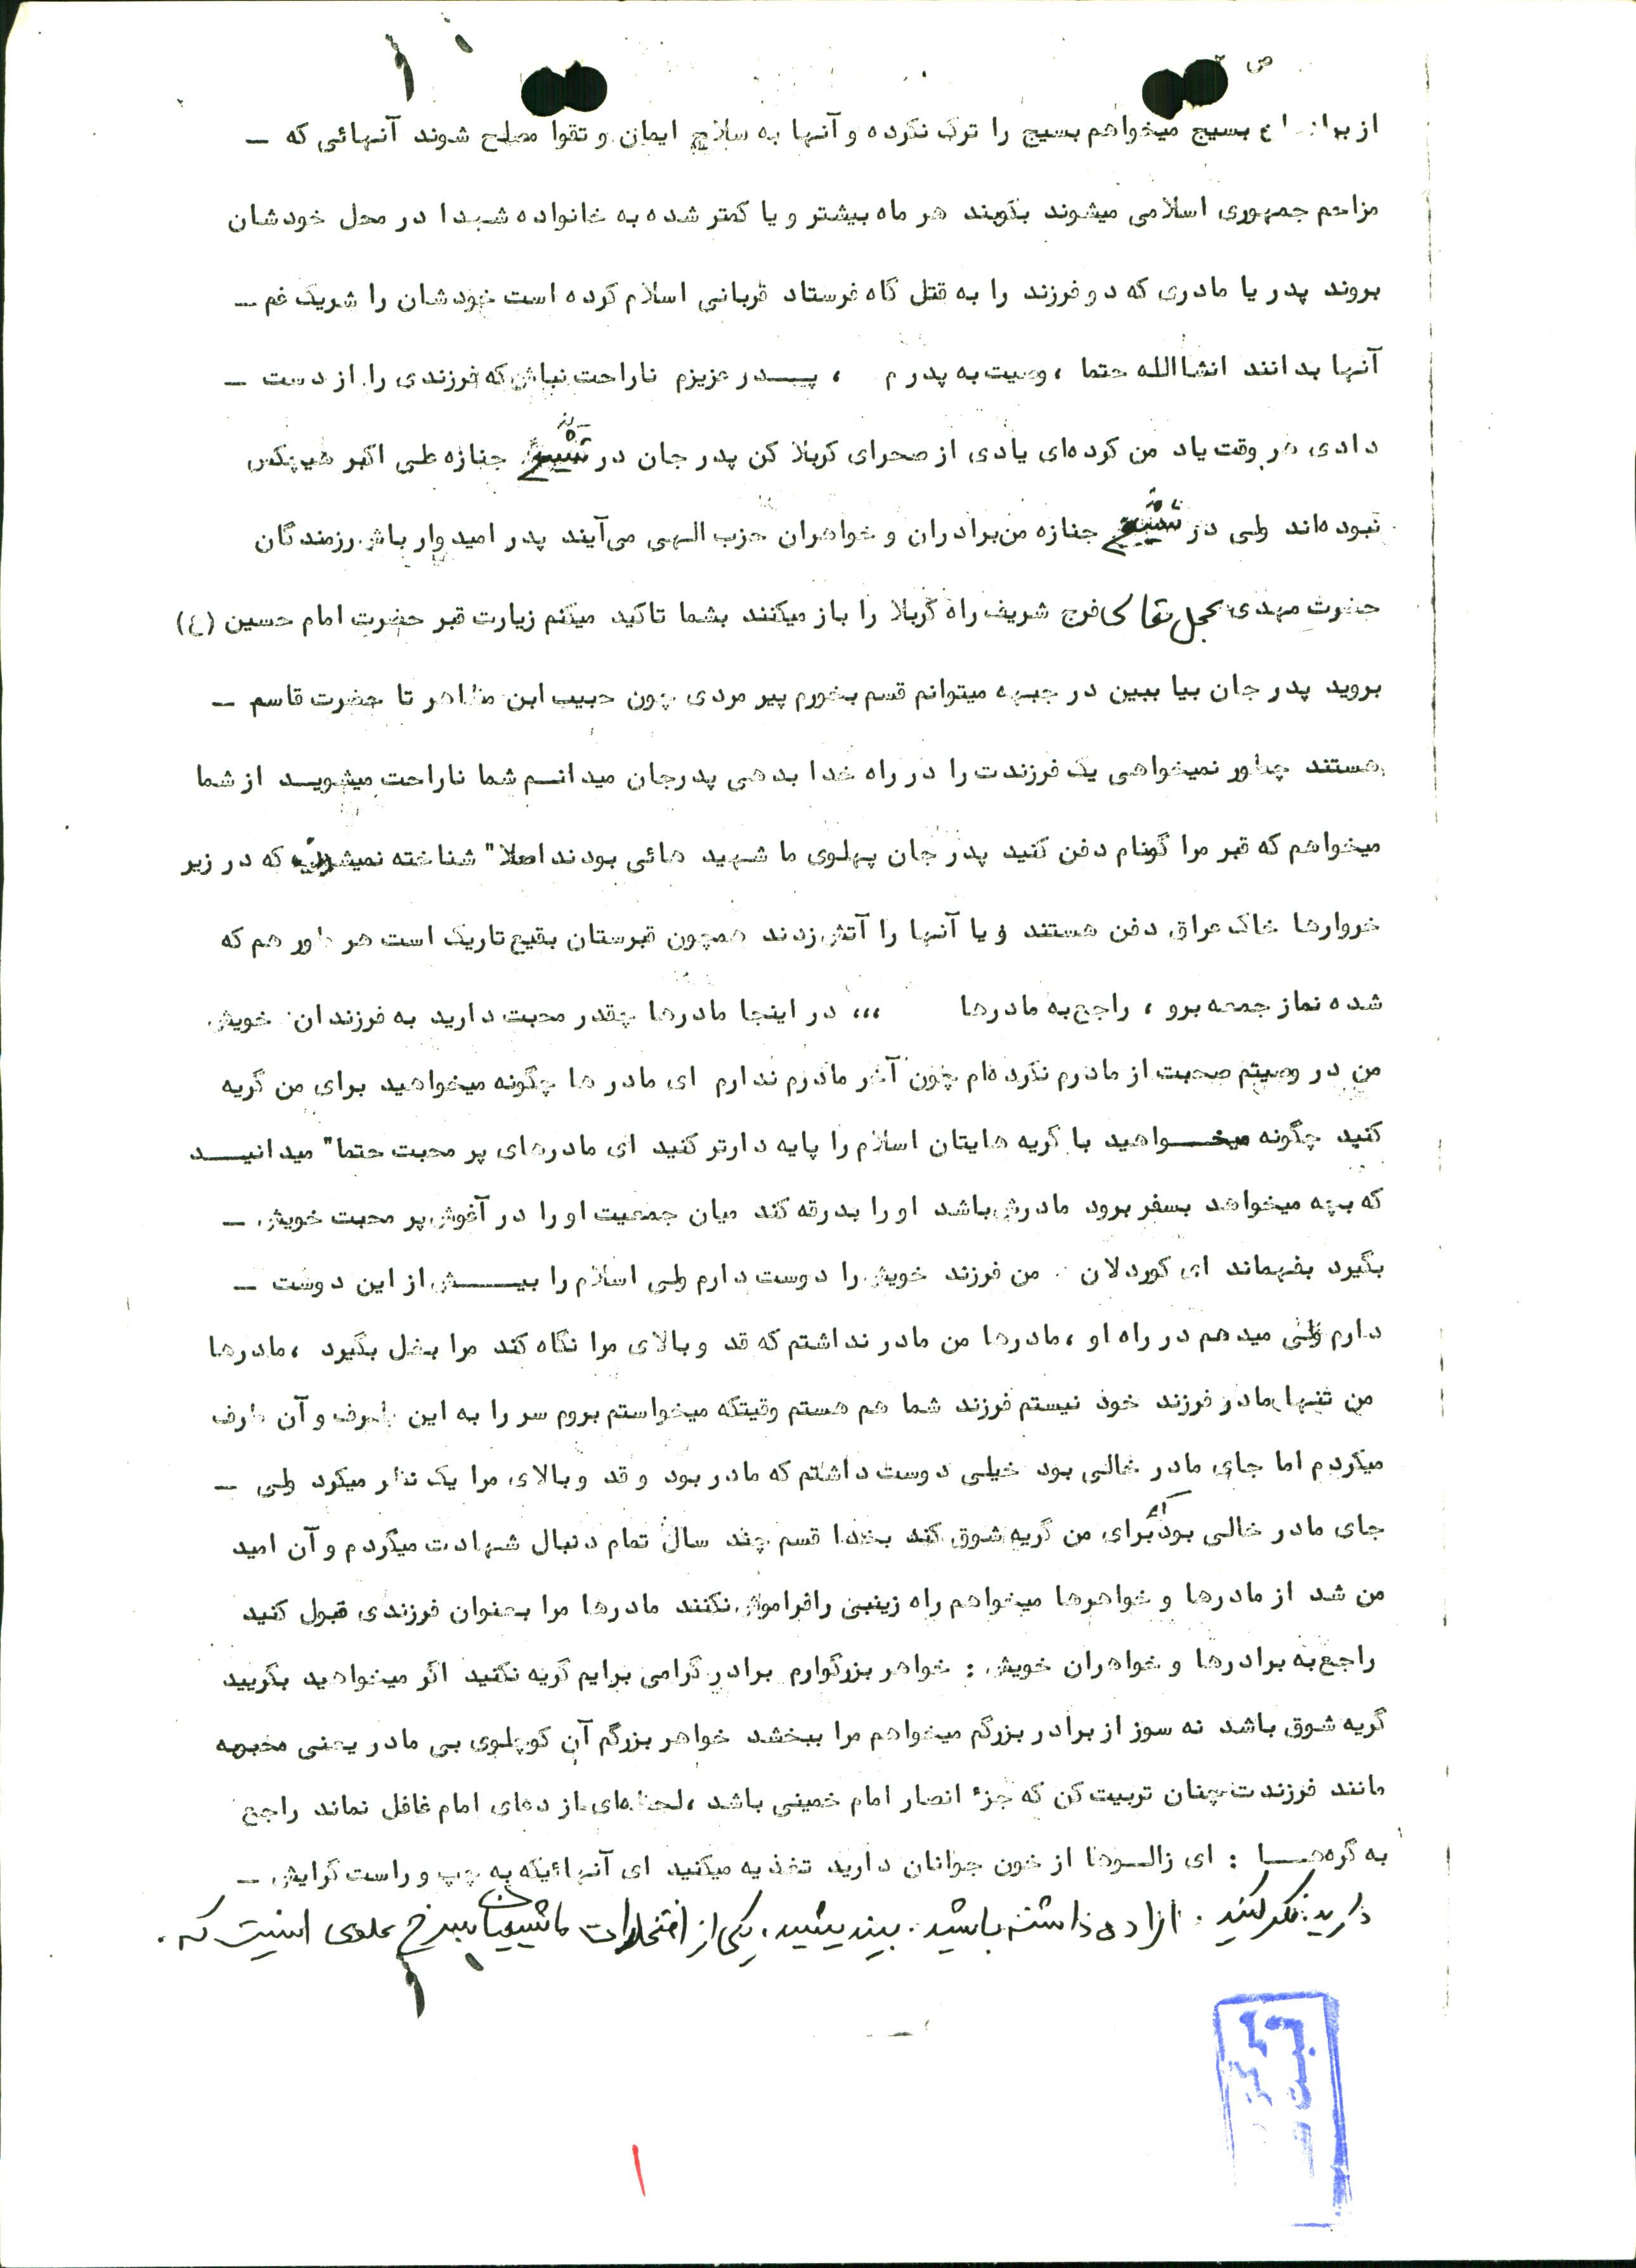 ص
از برادران بسیج میخواهم بسیج را ترک نکرده و آنها به سلاح ایمان و تقوا مصلح شوند آنهائی که –
مزاحم جمهوری اسلامی میشوند بگویند هر ماه بیشتر و یا کمتر شده به خانواده شهدا در محل خودشان
بروند پدر یا مادری که دو فرزند را به قتل گاه فرستاد قربانی اسلام کرده است خودشان را شریک غم –
آنها بدانند انشاالله حتما ، وصیت به پدرم ، پـــدر عزیزم ناراحت نباش که فرزندی را از دست –
دادی هر وقت یاد من کرده‌ای یادی از صحرای کربلا کن پدر جان در تشییع جنازه علی اکبر هیچکس
نبوده‌اند ولی در تشییع جنازه من برادران و خواهران حزب الهی می‌آیند پدر امیدوار باش رزمندگان
حضرت مهدی عجل تعالی فرج شریف راه کربلا را باز میکنند بشما تاکید میکنم زیارت قبر حضرت امام حسین (ع)
بروید پدر جان بیا ببین در جبهه میتوانم قسم بخورم پیر مردی چون حبیب ابن مظاهر تا حضرت قاسم –
هستند چطور نمیخواهی یک فرزندت را در راه خدا بدهی پدرجان میدانـم شما ناراحت میشویـد از شما
میخواهم که قبر مرا گمنام دفن کنید پدر جان پهلوی ما شهید هائی بودند اصلا" شناخته نمیشوند که در زیر
خروارها خاک عراق دفن هستند و یا آنها را آتش زدند همچون قبرستان بقیع تاریک است هر طور هم که
شده نماز جمعه برو ، راجع به مادرها ،،، در اینجا مادرها چقدر محبت دارید به فرزندان خویش
من در وصیتم صحبت از مادرم نکرده‌ام چون آخر مادرم ندارم ای مادر ها چگونه میخواهید برای من گریه
کنید چگونه میخـــواهید با گریه هایتان اسلام را پایه دارتر کنید ای مادرهای پر محبت حتما" میدانیـــد
که بچه میخواهد بسفر برود مادرش باشد او را بدرقه کند میان جمعیت او را در آغوش پر محبت خویش –
بگیرد بفهماند ای کوردلان . من فرزند خویش را دوست دارم ولی اسلام را بیـــــش از این دوست –
دارم ولی میدهم در راه او ، مادرها من مادر نداشتم که قد و بالای مرا نگاه کند مرا بغل بگیرد ، مادرها
من تنها مادر فرزند خود نیستم فرزند شما هم هستم وقیتکه میخواستم بروم سر را به این طرف و آن طرف
میکردم اما جای مادر خالی بود خیلی دوست داشتم که مادر بود و قد و بالای مرا یک نظر میکرد ولی –
جای مادر خالی بود که برای من گریه شوق کند بخدا قسم چند سال تمام دنبال شهادت میگردم و آن امید
من شد از مادرها و خواهرها میخواهم راه زینبی را فراموش نکنند مادرها مرا بعنوان فرزندی قبول کنید
راجع به برادرها و خواهران خویش : خواهر بزرگوارم برادر گرامی برایم گریه نکنید اگر میخواهید بگریید
گریه شوق باشد نه سوز از برادر بزرگم میخواهم مرا ببخشد خواهر بزرگم آن کوچلوی بی مادر یعنی
مانند فرزندت چنان تربیت کن که جزٔ انصار امام خمینی باشد ، لحظه‌ای از دعای امام غافل نماند راجع
به گره‌هـــا : ای زالــوها از خون جوانان دارید تغذیه میکنید ای آنهائیکه به چپ و راست گرایش –
دارید . فکر کنید . اراده داشته باشید . بیندیشید . یکی از افتخارات ما شیعیان سرخ علوی اینست که .
ثبت شد
۱